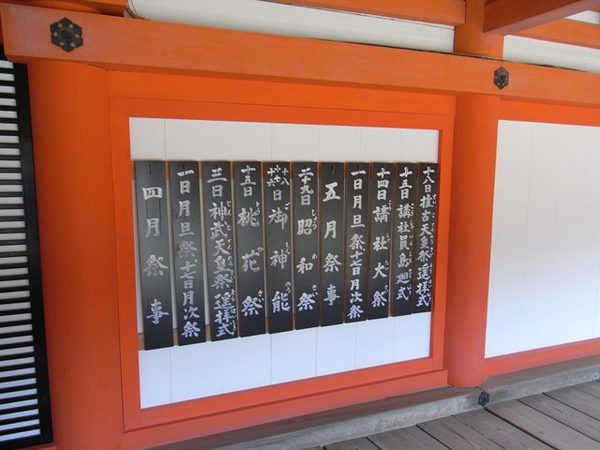 四月祭事
一日月旦祭 十七日月次祭
三日神武天皇祭遙拝式
十五日桃花祭
十六 十七 十八日御神能
二十九日昭和祭
五月祭事
一日月旦祭 十七日月次祭
十四日講社大祭
十五日講社員島廻式
十八日推古天皇祭遙拝式